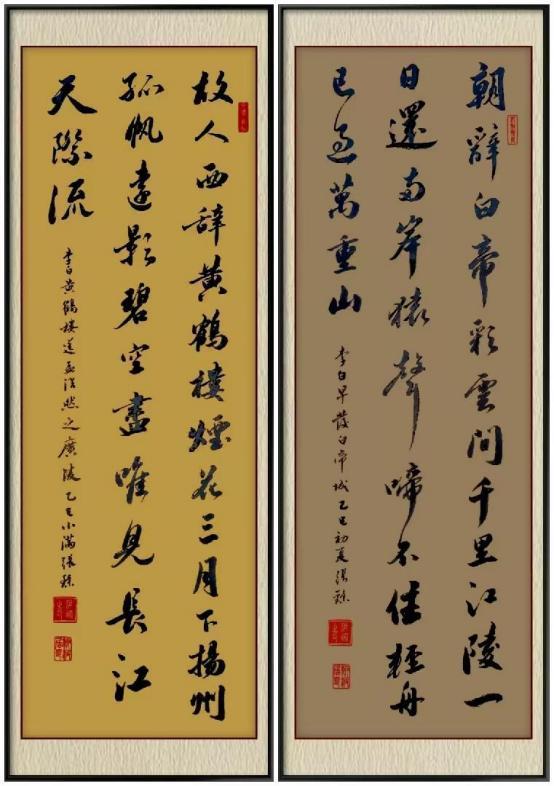 朝辭白帝彩雲間千里江陵一
日還兩岸猿聲啼不住輕舟
已過萬重山
李白早發白帝城乙巳初夏張
故人西辞黄鶴樓煙花三月下揚州
孤帆遠影碧空盡唯見長江
天際流
李白黄鶴樓送孟浩然之廣陵乙巳小滿張